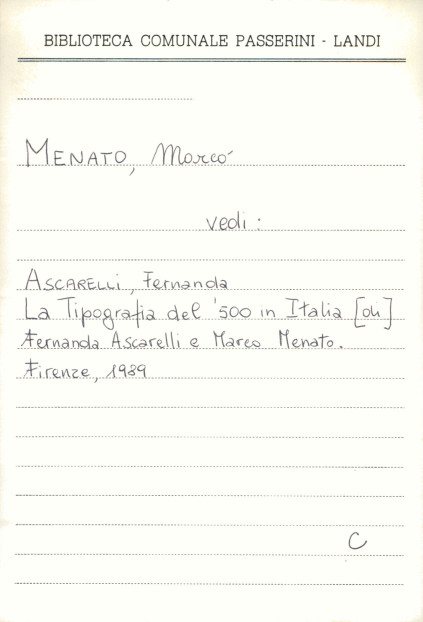 BIBLIOTECA COMUNALE PASSERINI - LANDI
MENATO, Marco
vedi :
ASCARELLI, Fernanda
La Tipografia del '500 in Italia [di]
Fernanda Ascarelli e Marco Menato.
Firenze, 1989
C